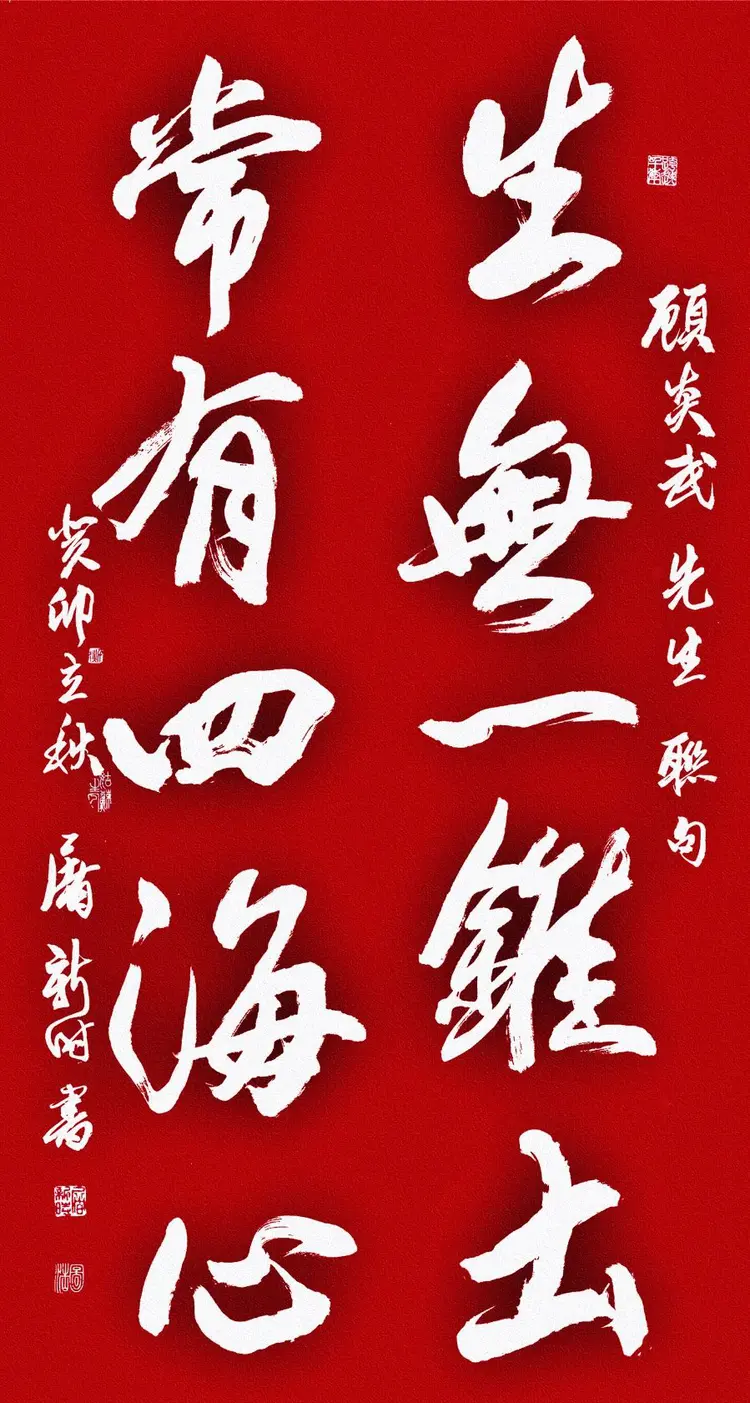 顧炎武先生聯句
生無一錐土
常有四海心
癸卯立秋 屠新时書